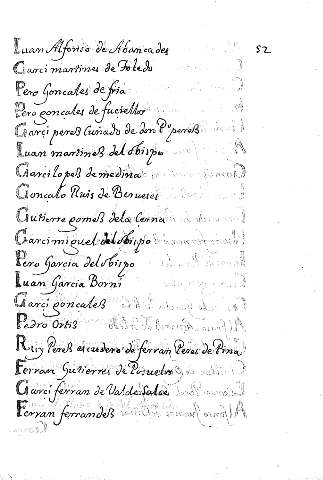 Iuan Alfonso de Abancades 52
Garci martines de Toledo
Pero Goncales de fria
Pero goncales de
Garçi pereß Cuñado de don P.º pereß
Iuan martineß del obispo
Garci lopeß de medina
Goncalo Ruis de Berueses
Gutierre gomeß dela Cerna
Garci miguel del obispo
Pero Garcia del obispo
Iuan Garcia Borni
Garçi goncaleß
Pedro Ortiß
Ruy Pereß escudero de ferran Peres de Pina
Ferran Gutierres de
Garci ferran de Val de
Ferran ferrandeß